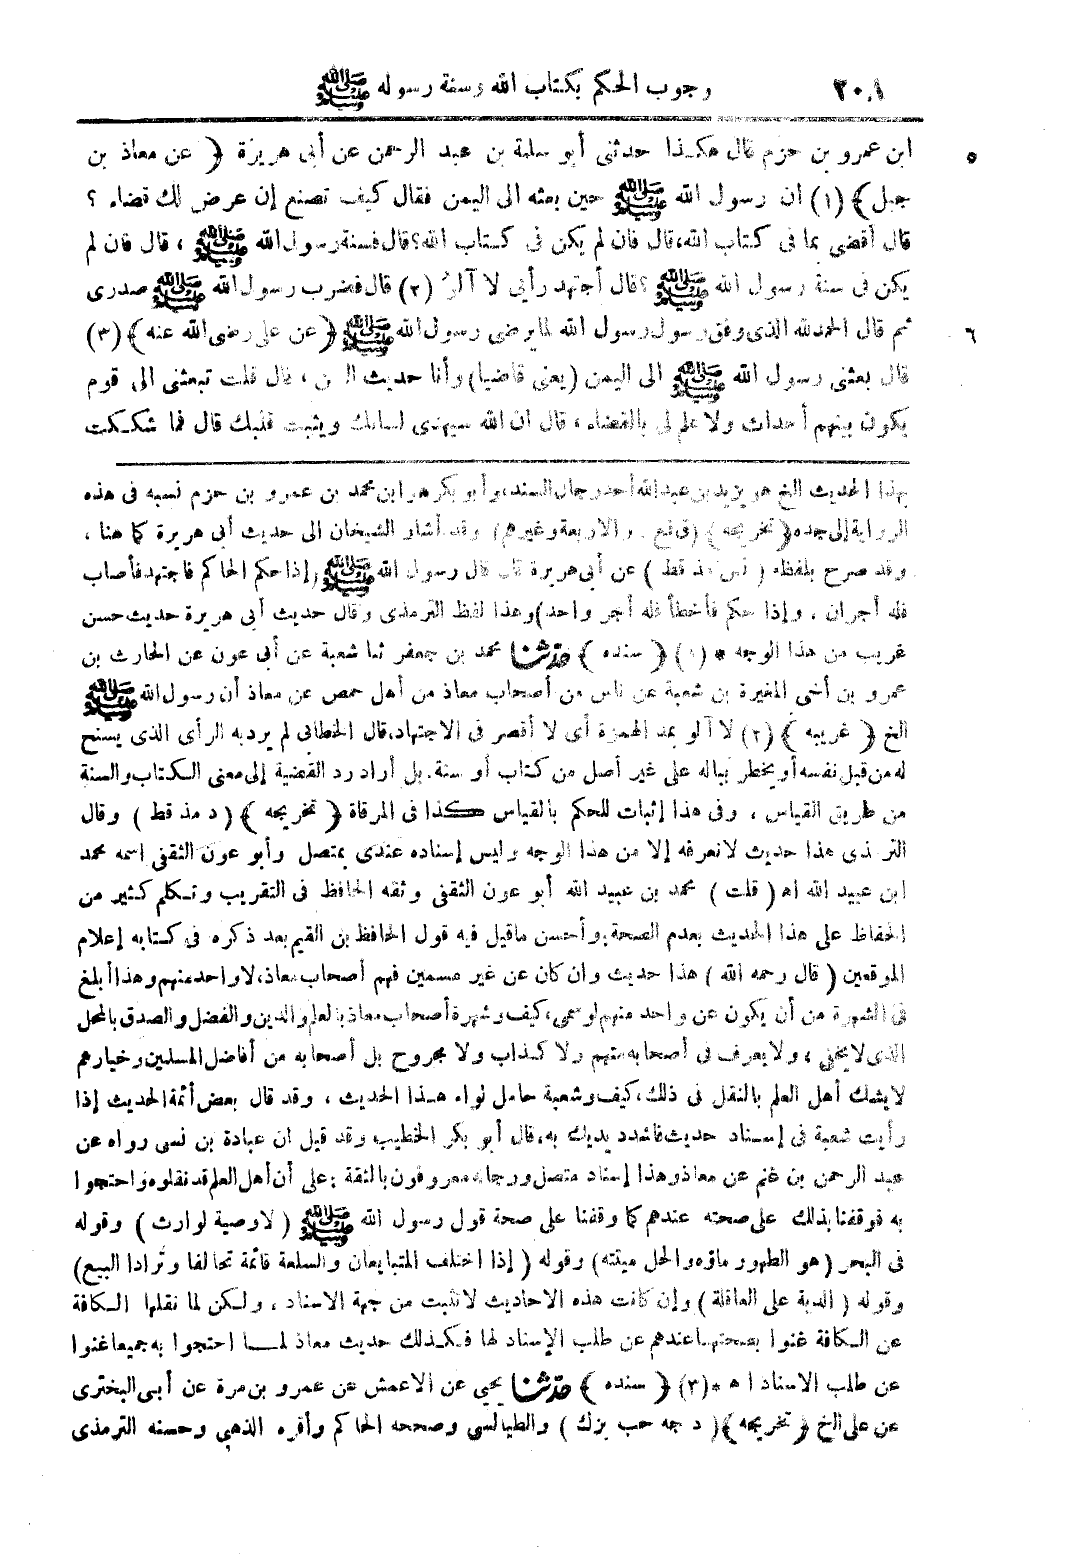 ٢٠٨ وجوب الحكم بكتاب الله وسنة رسوله ﷺ
ابن عمرو بن حزم قال هكذا حدثنى أبو سلمة بن عبد الرحمن عن أبى هريرة ﴿ عن معاذ بن ٥
جبل﴾ (١) ان رسول الله ﷺ حين بعثه الى اليمن فقال كيف تصنع إن عرض لك قضاء ؟
قال أقضى بما فى كتاب الله، قال فان لم يكن فى كتاب الله؟ قال فسنة رسول الله ﷺ ، قال فان لم
يكن فى سنة رسول الله ﷺ ؟ قال أجتهد رأيى لا آلو (٢) قال فضرب رسول الله ﷺ صدرى
ثم قال الحمدلله الذى وفق رسول رسول الله لما يرضى رسول الله ﷺ ﴿عن على رضى الله عنه﴾ (٣) ٦
قال بعثنى رسول الله ﷺ الى اليمن (يعنى قاضيا) وأنا حديث السن ، قال قلت تبعثنى الى قوم
يكون بينهم أحداث ولا علم لى بالقضاء ، قال ان الله سيهدى لسانك ويثبت قلبك قال فما شككت
بهذا الحديث الخ هو يزيد بن عبد الله أحد رجال السند، وأبو بكر هو ابن محمد بن عمرو بن حزم نسبه فى هذه
الرواية إلى جده ﴿تخريجه﴾ (ق فع . والاربعة وغيرهم) وقد أشار الشيخان الى حديث أبى هريرة كما هنا ،
وقد صرح بلفظه ( نس مذ قط ) عن أبى هريرة قال قال رسول الله ﷺ (إذا حكم الحاكم فاجتهد فأصاب
فله أجران ، وإذا حكم فأخطأ فله أجر واحد) وهذا لفظ الترمذى وقال حديث أبى هريرة حديث حسن
غريب من هذا الوجه * (١) ﴿ سنده ﴾ حدثنا محمد بن جعفر ثنا شعبة عن أبى عون عن الحارث بن
عمرو بن أخى المغيرة بن شعبة عن ناس من أصحاب معاذ من أهل حمص عن معاذ أن رسول الله ﷺ
الخ ﴿ غريبه ﴾ (٢) لا آلو بمد الهمزة أى لا أقصر فى الاجتهاد، قال الخطابى لم يرد به الرأى الذى يسنح
له من قبل نفسه أو يخطر بباله على غير أصل من كتاب أو سنة. بل أراد رد القضية إلى معنى الكتاب والسنة
من طريق القياس ، وفى هذا إثبات للحكم بالقياس كذا فى المرقاة ﴿ تخريجه ﴾ ( د مذ قط ) وقال
الترمذى هذا حديث لا نعرفه إلا من هذا الوجه وليس إسناده عندى بمتصل وأبو عون الثقفى اسمه محمد
ابن عبيد الله اه ( قلت ) محمد بن عبيد الله أبو عون الثقفى وثقه الحافظ فى التقريب وتكلم كثير من
الحفاظ على هذا الحديث بعدم الصحة، وأحسن ماقيل فيه قول الحافظ بن القيم بعد ذكره فى كتابه إعلام
الموقعين ( قال رحمه الله ) هذا حديث وان كان عن غير مسمين فهم أصحاب معاذ، لا واحد منهم وهذا أبلغ
فى الشهرة من أن يكون عن واحد منهم لو سمى، كيف وشهرة أصحاب معاذ بالعلم والدين والفضل والصدق بالمحل
الذى لا يخفى ، ولا يعرف فى أصحابه متهم ولا كذاب ولا مجروح بل أصحابه من أفاضل المسلمين وخيارهم
لا يشك أهل العلم بالنقل فى ذلك، كيف وشعبة حامل لواء هذا الحديث ، وقد قال بعض أئمة الحديث إذا
رأيت شعبة فى إسناد حديث فاشدد يديك به، قال أبو بكر الخطيب وقد قيل ان عبادة بن نسى رواه عن
عبد الرحمن بن غنم عن معاذ وهذا إسناد متصل ورجاله معروفون بالثقة ; على أن أهل العلم قد نقلوه واحتجوا
به فوقفنا بذلك على صحته عندهم كما وقفنا على صحة قول رسول الله ﷺ ( لا وصية لوارث ) وقوله
فى البحر ( هو الطهور ماؤه والحل ميتته) وقوله ( إذا اختلف المتبايعان والسلعة قائمة تحالفا وترادا البيع)
وقوله ( الدية على العاقلة ) وإن كانت هذه الاحاديث لا تثبت من جهة الاسناد ، ولكن لما نقلها الكافة
عن الكافة غنوا بصحتها عندهم عن طلب الإسناد لها فكذلك حديث معاذ لما احتجوا به جميعا غنوا
عن طلب الاسناد ا ه *(٣) ﴿ سنده ﴾ حدثنا يحيى عن الاعمش عن عمرو بن مرة عن أبى البخترى
عن على الخ ﴿تخريجه﴾ ( د جه حب بزك ) والطيالسى وصححه الحاكم وأقره الذهبى وحسنه الترمذى